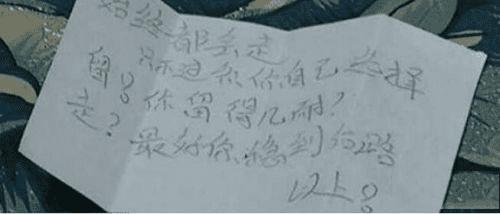 始终都系走
只不过系你自己选择
留？你留得几耐？
走？最好你稳到路
以上？